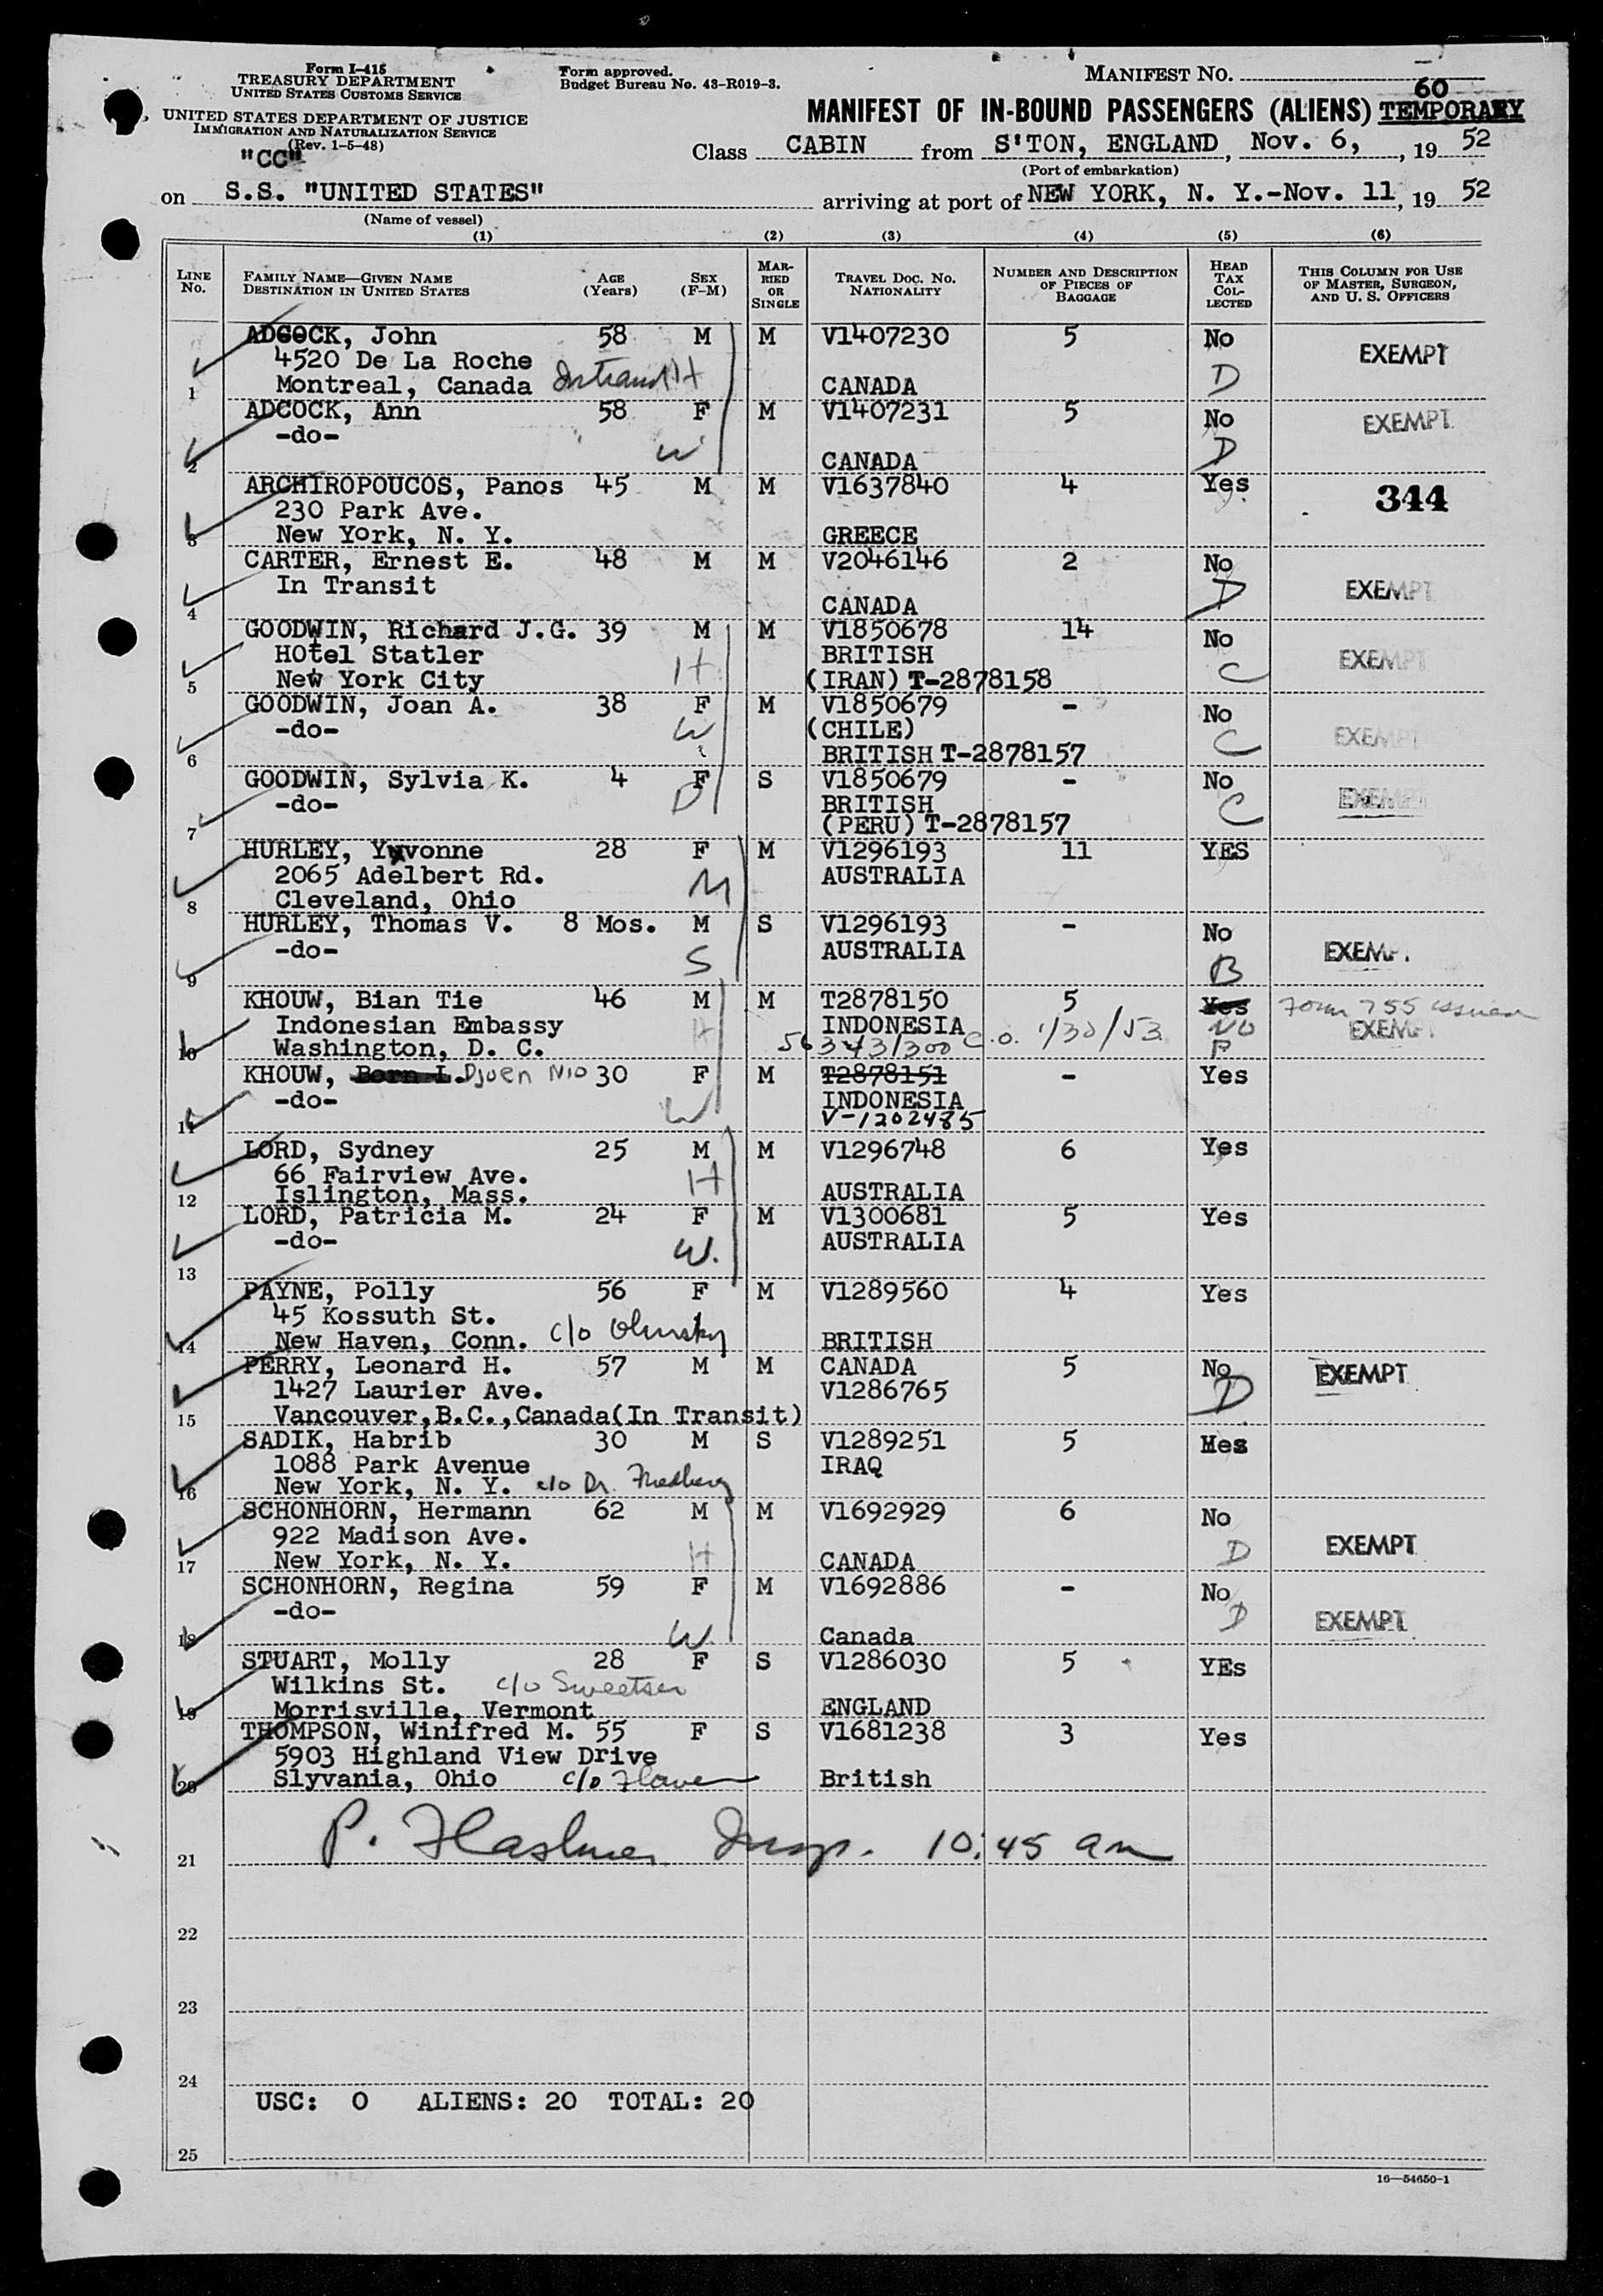 Form I-415
TREASURY DEPARTMENT
UNITED STATES CUSTOMS SERVICE
UNITED STATES DEPARTMENT OF JUSTICE
IMMIGRATION AND NATURALIZATION SERVICE
(Rev. 1-5-48)
"CC"
Form approved.
Budget Bureau No. 43-R019-3.
MANIFEST NO.
60
MANIFEST OF IN-BOUND PASSENGERS (ALIENS) TEMPORARY
Class CABIN from S'TON, ENGLAND, Nov. 6, , 19 52
(Port of embarkation)
on S.S. "UNITED STATES" arriving at port of NEW YORK, N. Y.-Nov. 11, 19 52
(Name of vessel)
(1) (2) (3) (4) (5) (6)
LINE No. FAMILY NAME—GIVEN NAME DESTINATION IN UNITED STATES AGE (Years) SEX (F-M) MARRIED OR SINGLE TRAVEL DOC. NO. NATIONALITY NUMBER AND DESCRIPTION OF PIECES OF BAGGAGE HEAD TAX COLLECTED THIS COLUMN FOR USE OF MASTER, SURGEON, AND U. S. OFFICERS
ADCOCK, John 58 M M V1407230 5 No EXEMPT
4520 De La Roche
1 Montreal, Canada H CANADA D
ADCOCK, Ann 58 F M V1407231 5 No EXEMPT
-do- W D
2 CANADA
ARCHIROPOUCOS, Panos 45 M M V1637840 4 Yes 344
230 Park Ave.
3 New York, N. Y. GREECE
CARTER, Ernest E. 48 M M V2046146 2 No
In Transit D EXEMPT
4 CANADA
GOODWIN, Richard J.G. 39 M M V1850678 14 No
HOtel Statler H BRITISH EXEMPT
5 New York City (IRAN) T-2878158 C
GOODWIN, Joan A. 38 F M V1850679 - No
-do- W (CHILE) C EXEMPT
6 BRITISH T-2878157
GOODWIN, Sylvia K. 4 F S V1850679 - No
-do- D BRITISH C EXEMPT
7 (PERU) T-2878157
HURLEY, Yvvonne 28 F M V1296193 11 YES
2065 Adelbert Rd. M AUSTRALIA
8 Cleveland, Ohio
HURLEY, Thomas V. 8 Mos. M S V1296193 - No
-do- S AUSTRALIA EXEMP.
9 B
KHOUW, Bian Tie 46 M M T2878150 5 Yes Form 755 issued
Indonesian Embassy H INDONESIA NO EXEM
10 Washington, D. C. 56343/300 C.O. 1/30/53 P
KHOUW, Born I. Djoen Nio 30 F M T2878151 - Yes
-do- W INDONESIA
11 V-1202485
LORD, Sydney 25 M M V1296748 6 Yes
66 Fairview Ave. H
12 Islington, Mass. AUSTRALIA
LORD, Patricia M. 24 F M V1300681 5 Yes
-do- W. AUSTRALIA
13
PAYNE, Polly 56 F M V1289560 4 Yes
45 Kossuth St.
14 New Haven, Conn. c/o BRITISH
PERRY, Leonard H. 57 M M CANADA 5 No EXEMPT
1427 Laurier Ave. V1286765 D
15 Vancouver,B.C.,Canada(In Transit)
SADIK, Habrib 30 M S V1289251 5
1088 Park Avenue IRAQ
16 New York, N. Y. c/o Dr. Friedberg
SCHONHORN, Hermann 62 M M V1692929 6 No
922 Madison Ave. H D EXEMPT
17 New York, N. Y. CANADA
SCHONHORN, Regina 59 F M V1692886 - No
-do- W. D EXEMPT
18 Canada
STUART, Molly 28 F S V1286030 5 YEs
Wilkins St. c/o Sweetser
19 Morrisville, Vermont ENGLAND
THOMPSON, Winifred M. 55 F S V1681238 3 Yes
5903 Highland View Drive
20 Slyvania, Ohio c/o British
21 P. Insp. 10:45 am
22
23
24
USC: 0 ALIENS: 20 TOTAL: 20
25
16—54650-1